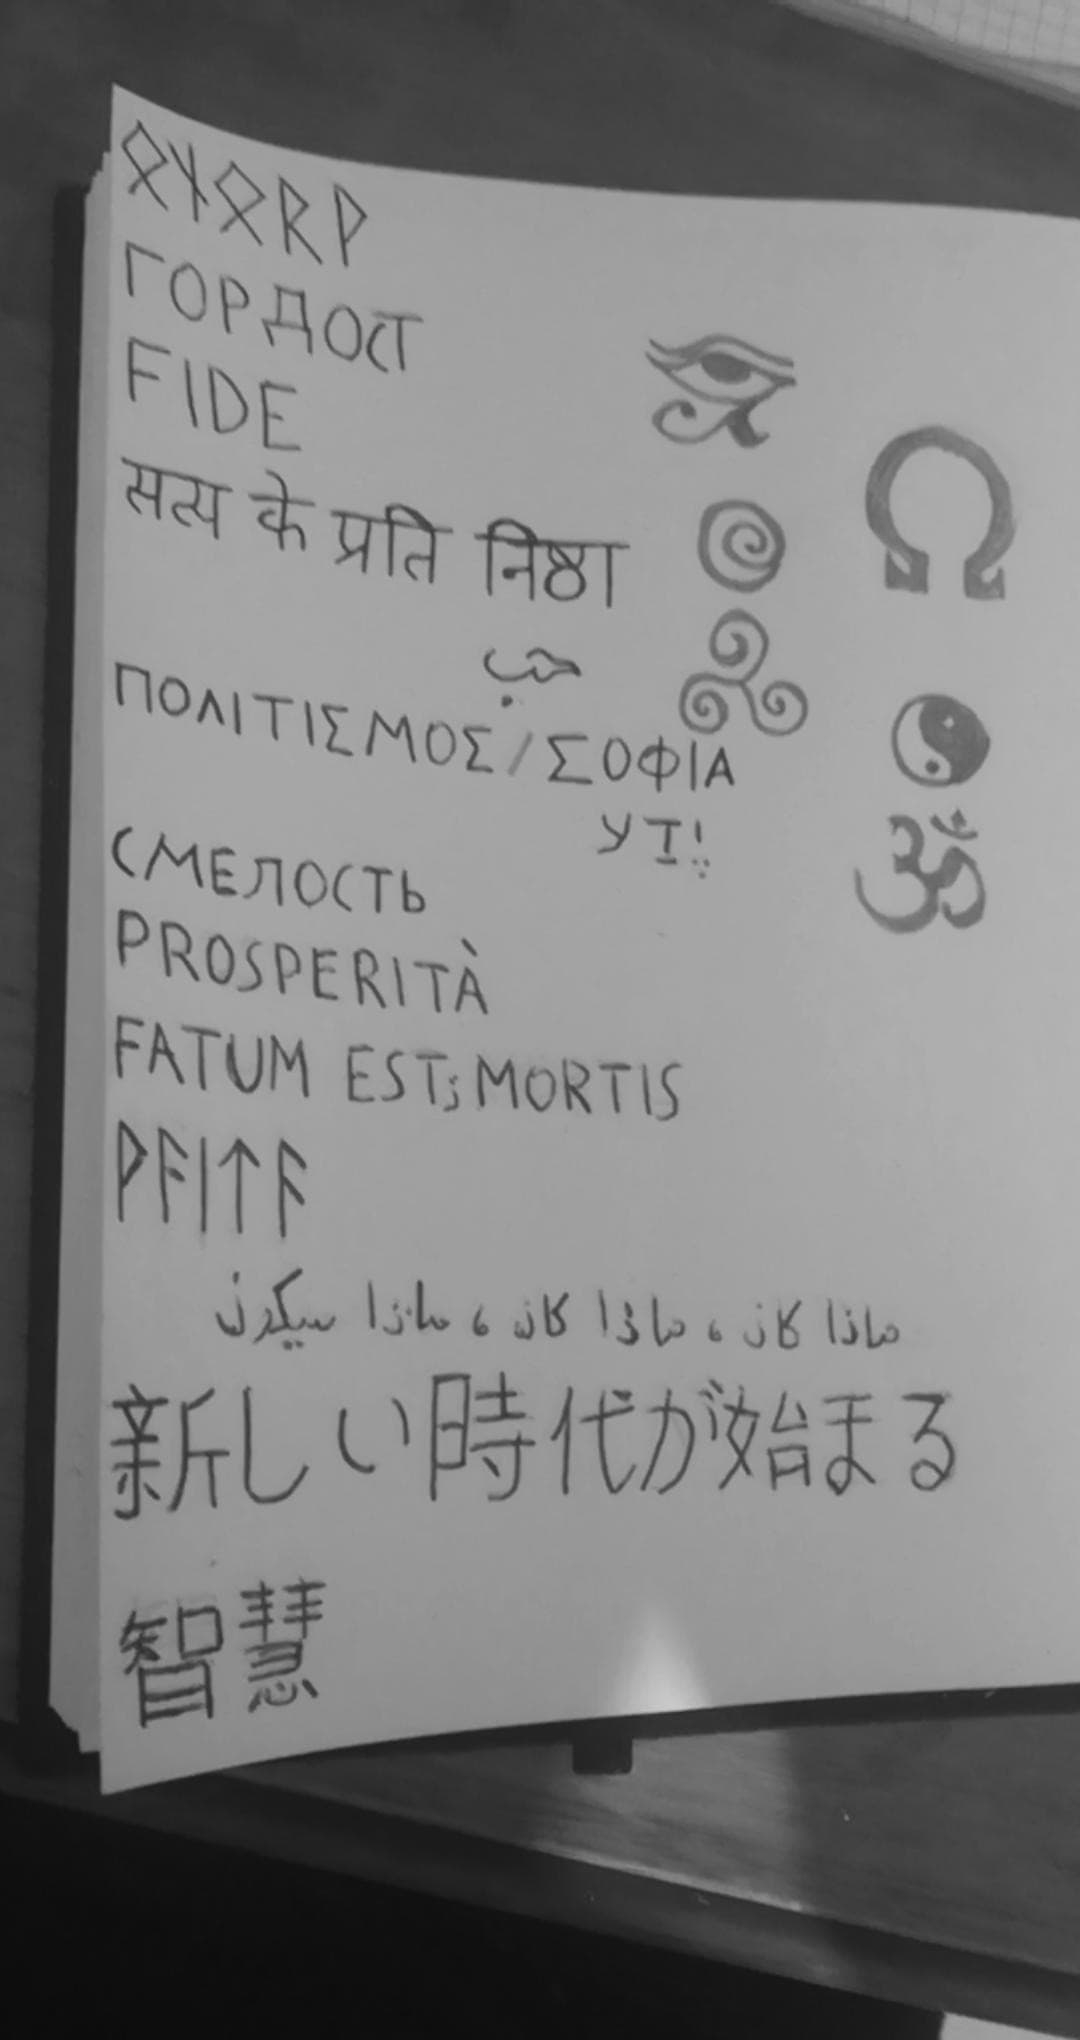 ᛟᚾᛟᚱᚹ
ГОРДОСТ
FIDE
सत्य के प्रति निष्ठा
حب
ΠΟΛΙΤΙΣΜΟΣ/ΣΟΦΙΑ
СМЕЛОСТЬ
PROSPERITÀ
FATUM EST; MORTIS
ᚹᚨᛁᛏᚨ
ماذا كان ، ماذا كان ، ماذا سيكون
新しい時代が始まる
智慧
Ω
ॐ